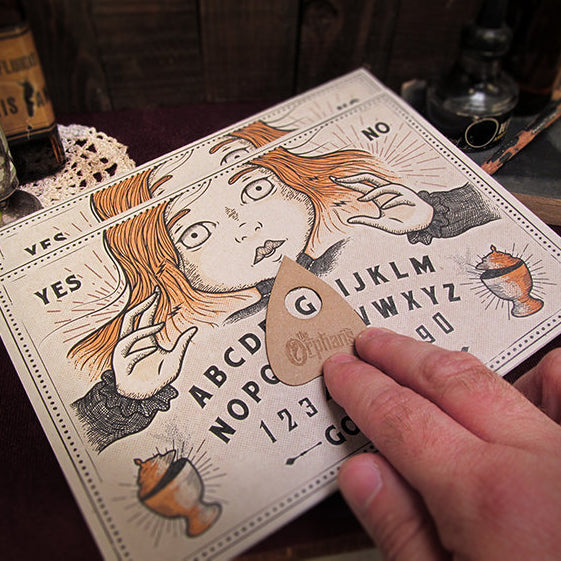 NO
YES
NO
YES
ABCD G IJKLM
NOP WXYZ
123 90
GO
the
Orphans